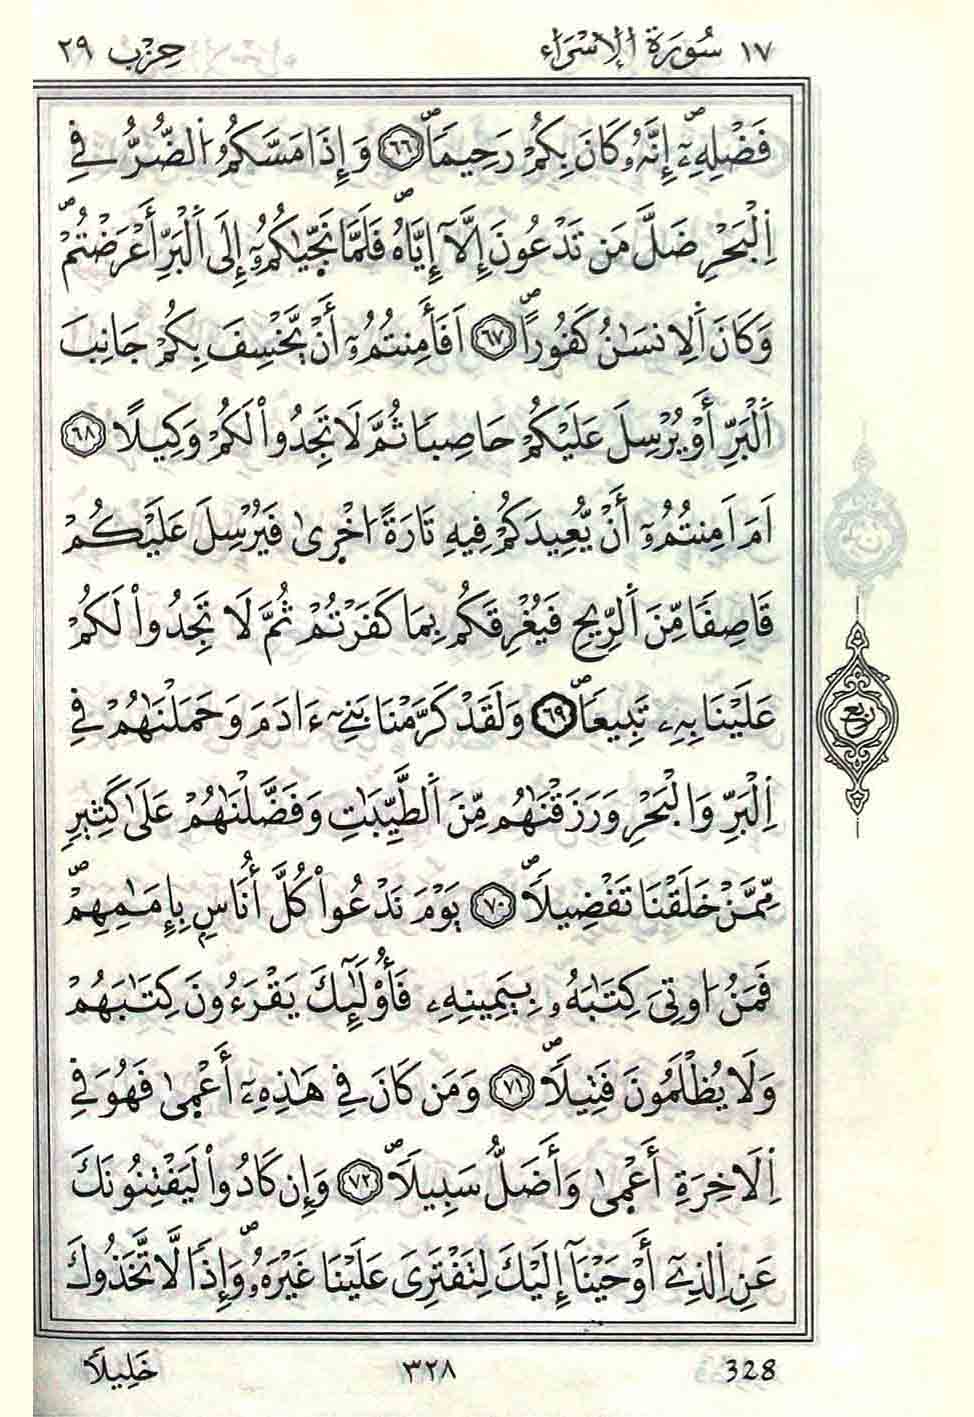 ١٧ سُورَةُ الِاسْرَاءِ
حِزْب ٢٩
فَضْلِهِۦٓۖ إِنَّهُۥ كَانَ بِكُمْ رَحِيمٗاۖ ٦٦ وَإِذَا مَسَّكُمُ اُ۬لضُّرُّ فِے
اِ۬لْبَحْرِ ضَلَّ مَن تَدْعُونَ إِلَّآ إِيَّاهُۖ فَلَمَّا نَجّ۪ىٰكُمُۥٓ إِلَى اَ۬لْبَرِّ أَعْرَضْتُمْۖ
وَكَانَ اَ۬لِانسَٰنُ كَفُوراًۖ ٦٧ اَفَأَمِنتُمُۥٓ أَنْ يَّخْسِفَ بِكُمْ جَانِبَ
اَ۬لْبَرِّ أَوْ يُرْسِلَ عَلَيْكُمْ حَاصِباٗ ثُمَّ لَا تَجِدُواْ لَكُمْ وَكِيلًا ٦٨
اَمَ اَمِنتُمُۥٓ أَنْ يُّعِيدَكُمْ فِيهِ تَارَةً ا۟خْر۪ىٰ فَيُرْسِلَ عَلَيْكُمْ
قَاصِفاٗ مِّنَ اَ۬لرِّيحِ فَيُغْرِقَكُم بِمَا كَفَرْتُمْ ثُمَّ لَا تَجِدُواْ لَكُمْ
عَلَيْنَا بِهِۦ تَبِيعاٗۖ ٦٩ وَلَقَدْ كَرَّمْنَا بَنِےٓ ءَادَمَ وَحَمَلْنَٰهُمْ فِے
اِ۬لْبَرِّ وَالْبَحْرِ وَرَزَقْنَٰهُم مِّنَ اَ۬لطَّيِّبَٰتِ وَفَضَّلْنَٰهُمْ عَلَىٰ كَثِيرٖ
مِّمَّنْ خَلَقْنَا تَفْضِيلاٗۖ ٧٠ يَوْمَ نَدْعُواْ كُلَّ أُنَاسِۢ بِإِمَٰمِهِمْۖ
فَمَنُ ا۟وتِيَ كِتَٰبَهُۥ بِيَمِينِهِۦ فَأُوْلَٰٓئِكَ يَقْرَءُونَ كِتَٰبَهُمْ
وَلَا يُظْلَمُونَ فَتِيلاٗۖ ٧١ وَمَن كَانَ فِے هَٰذِهِۦٓ أَعْم۪ىٰ فَهُوَ فِے
اِ۬لَاخِرَةِ أَعْم۪ىٰ وَأَضَلُّ سَبِيلاٗۖ ٧٢ وَإِن كَادُواْ لَيَفْتِنُونَكَ
عَنِ اِ۬لذِےٓ أَوْحَيْنَآ إِلَيْكَ لِتَفْتَرِيَ عَلَيْنَا غَيْرَهُۥۖ وَإِذاٗ لَّاتَّخَذُوكَ
ربع
خَلِيلاٗ
٣٢٨
328